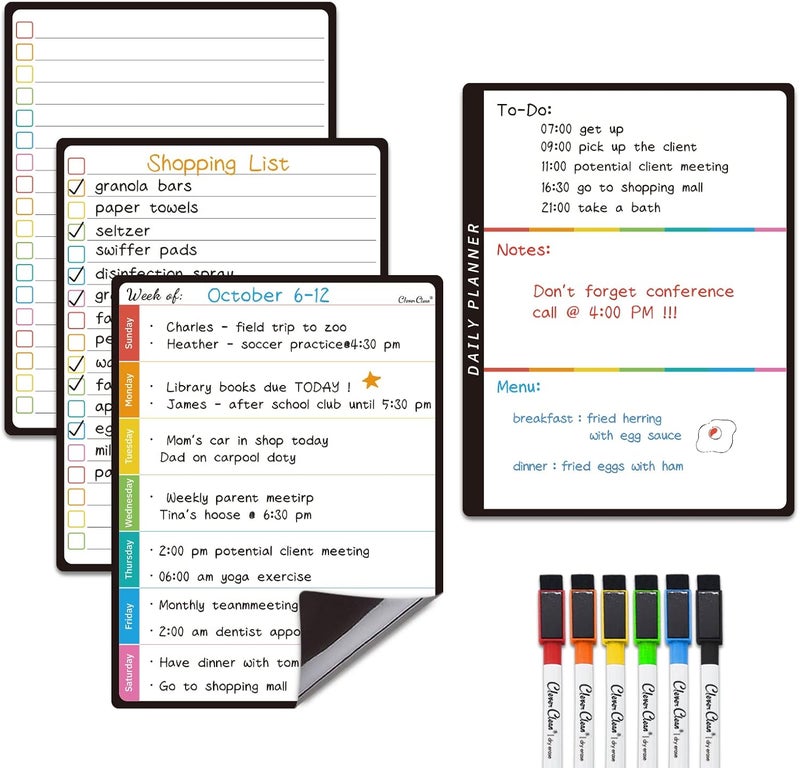 Shopping List
granola bars
paper towels
seltzer
swiffer pads
disinfection spray
Week of: October 6-12
Clever Clean®
Sunday
· Charles - field trip to zoo
· Heather - soccer practice@4:30 pm
Monday
· Library books due TODAY !
· James - after school club until 5:30 pm
Tuesday
· Mom's car in shop today
Dad on carpool doty
Wednesday
· Weekly parent meetirp
Tina's hoose @ 6:30 pm
Thursday
· 2:00 pm potential client meeting
· 06:00 am yoga exercise
Friday
· Monthly teammeeting
· 2:00 am dentist appo
Saturday
· Have dinner with tom
· Go to shopping mall
DAILY PLANNER
To-Do:
07:00 get up
09:00 pick up the client
11:00 potential client meeting
16:30 go to shopping mall
21:00 take a bath
Notes:
Don't forget conference
call @ 4:00 PM !!!
Menu:
breakfast : fried herring
with egg sauce
dinner : fried eggs with ham
Clever Clean® | dry erase
Clever Clean® | dry erase
Clever Clean® | dry erase
Clever Clean® | dry erase
Clever Clean® | dry erase
Clever Clean® | dry erase